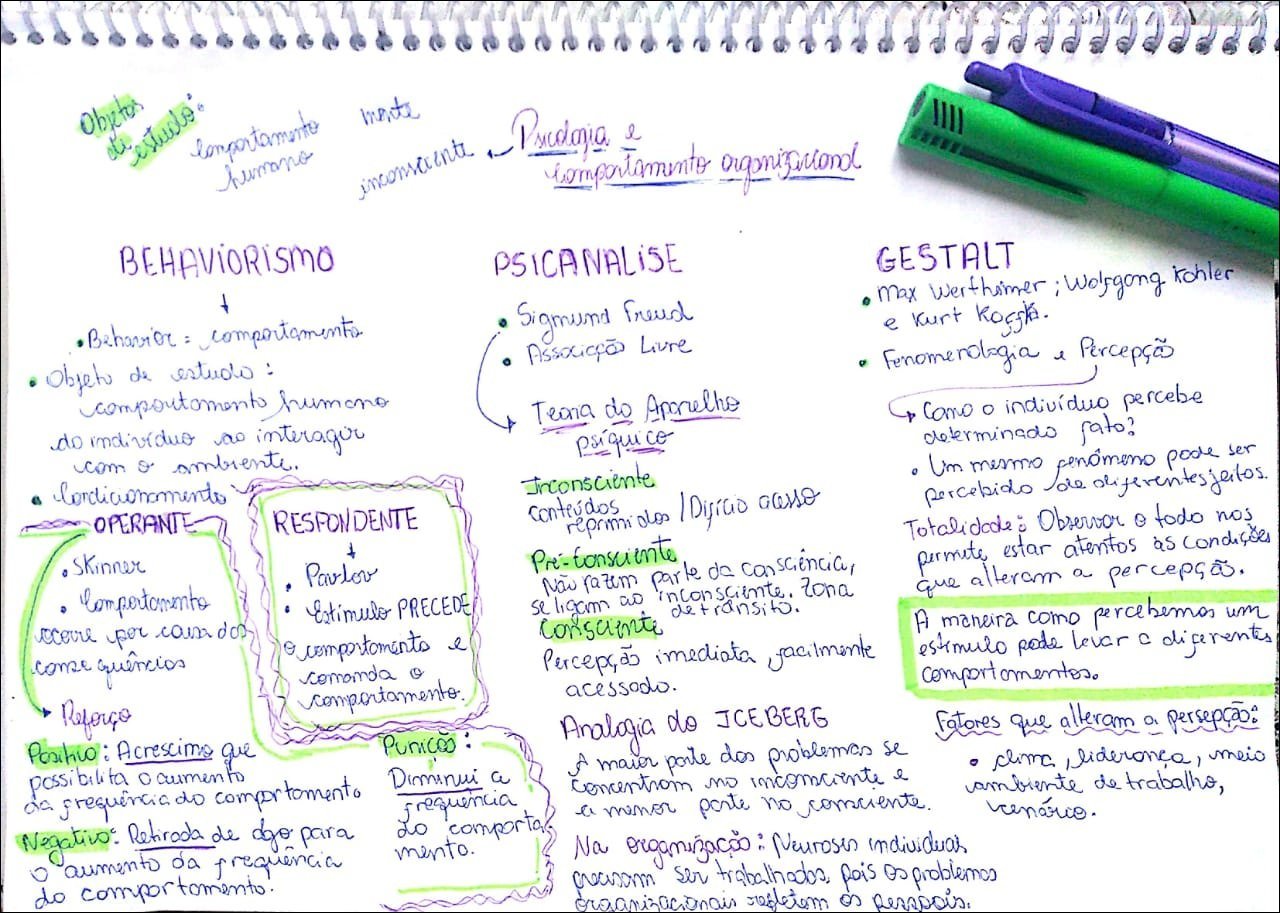 Objetos
de estudo:
comportamento
humano
mente
inconsciente
Psicologia e
comportamento organizacional
BEHAVIORISMO
• Behavior = comportamento
• Objeto de estudo:
comportamento humano
do indivíduo ao interagir
com o ambiente.
• Condicionamento
OPERANTE
• Skinner
• Comportamento
ocorre por causa das
consequências
Reforço
Positivo: Acrescimo que
possibilita o aumento
da frequência do comportamento
Negativo: Retirada de algo para
o aumento da frequência
do comportamento.
RESPONDENTE
• Pavlov
• Estímulo PRECEDE
o comportamento e
comanda o
comportamento.
Punição:
Diminui a
frequência
do comporta
mento.
PSICANALISE
• Sigmund Freud
• Associação Livre
Teoria do Aparelho
psíquico
Inconsciente
conteúdos
reprimidos / Difícil acesso
Pré-Consciente
Não fazem parte da consciência,
se ligam ao inconsciente. Zona
de trânsito.
Consciente
Percepção imediata, facilmente
acessado.
Analogia do ICEBERG
A maior parte dos problemas se
concentram no inconsciente e
a menor parte no consciente.
Na organização: Neuroses individuais
precisam ser trabalhadas, pois os problemas
organizacionais refletem os pessoais.
GESTALT
• Max Wertheimer; Wolfgang Kohler
e Kurt Koffka.
• Fenomenologia e Percepção
Como o indivíduo percebe
determinado fato?
• Um mesmo fenômeno pode ser
percebido de diferentes jeitos.
Totalidade: Observar o todo nos
permite estar atentos às condições
que alteram a percepção.
A maneira como percebemos um
estímulo pode levar a diferentes
comportamentos.
Fatores que alteram a persepção:
• clima, liderança, meio
ambiente de trabalho,
cenário.